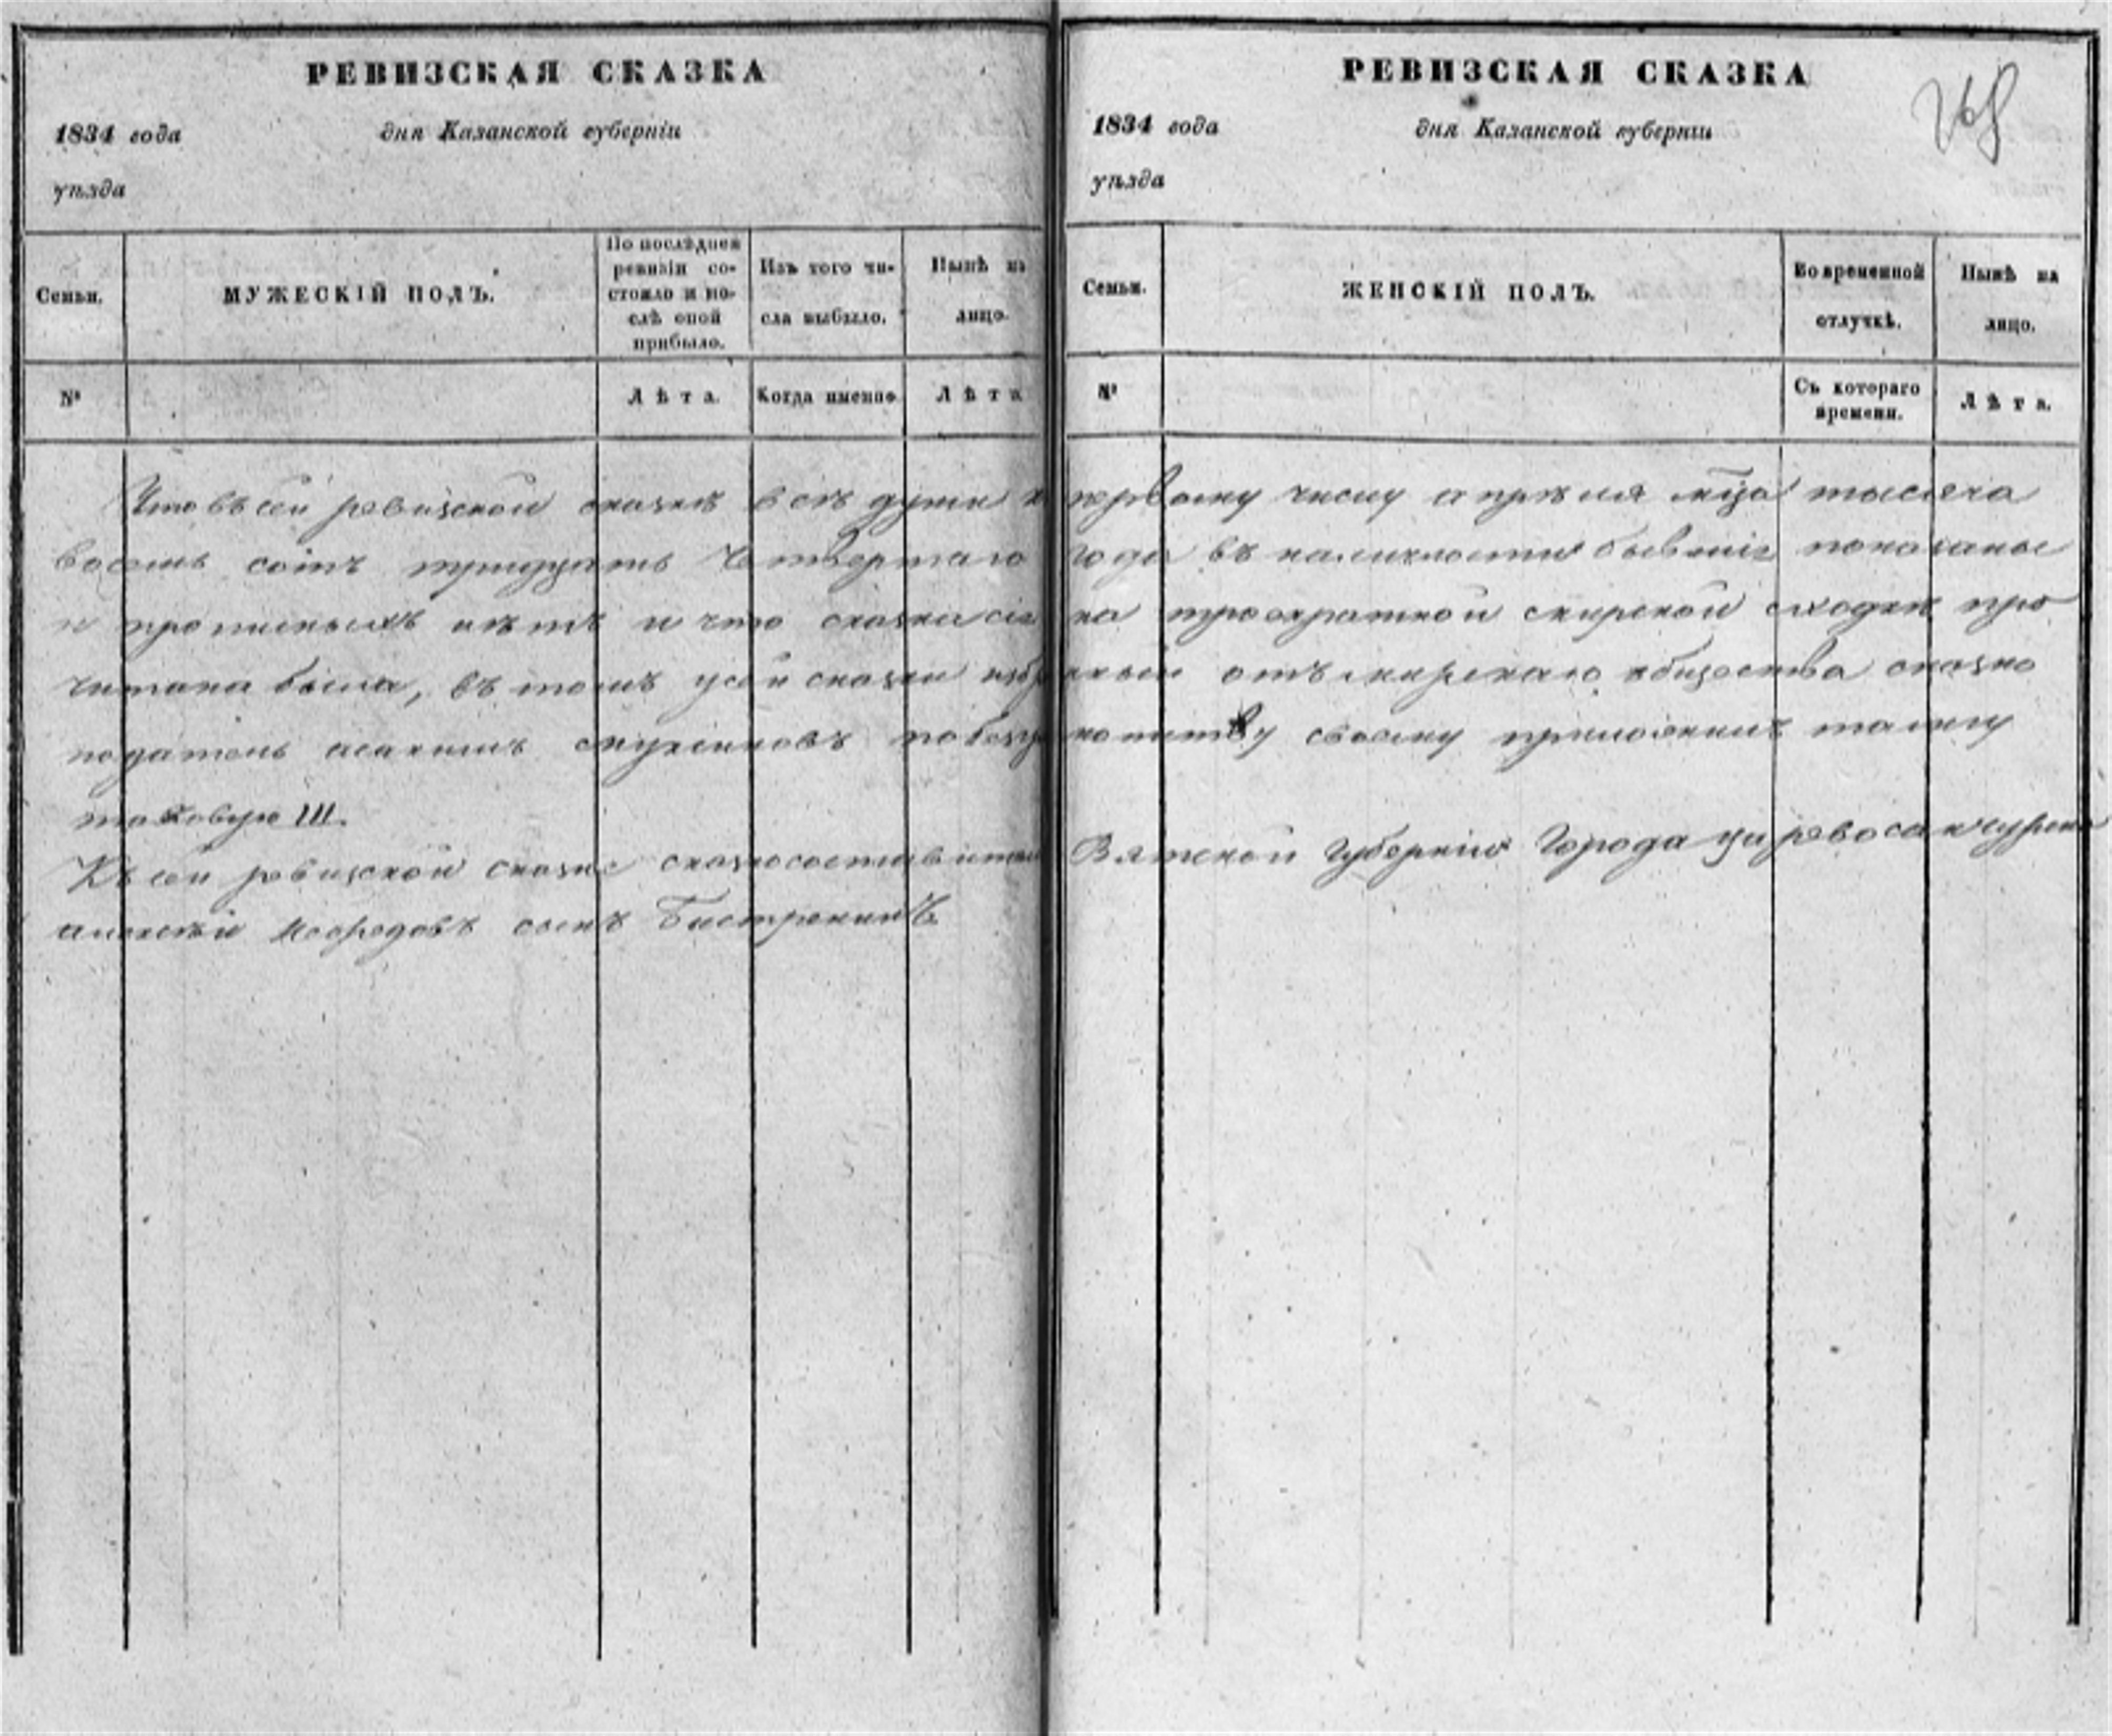 РЕВИЗСКАЯ СКАЗКА
1834 года дня Казанской губерніи
уѣзда
Семьи.
МУЖЕСКІЙ ПОЛЪ.
По послѣдней
ревизіи со-
стояло и по-
слѣ оной
прибыло.
Изъ того чи-
сла выбыло.
Нынѣ на
лицо.
№
Лѣта.
Когда именно.
Лѣта
РЕВИЗСКАЯ СКАЗКА
1834 года дня Казанской губерніи
уѣзда
Семьи.
ЖЕНСКІЙ ПОЛЪ.
Во временной
отлучкѣ.
Нынѣ на
лицо.
№
Съ котораго
времени.
Лѣта.
Что въ сей ревизской сказкѣ всѣ души к первому числу апрѣля мца тысяча
восемь сотъ тридцать четвертаго года въ наличности бывшіе показаны
и прописныхъ нѣтъ и что сказка сія на троекратной мирской сходкѣ про
читана была, въ томъ у сей сказки избранный отъ мирскаго общества сказко
податель по безграмотству своему приложилъ тамгу
таковую III.
Къ сей ревизской сказке сказкосоставитель Вятской Губерніи Города Царевосанчурска
алексѣй сынъ Быстренинъ